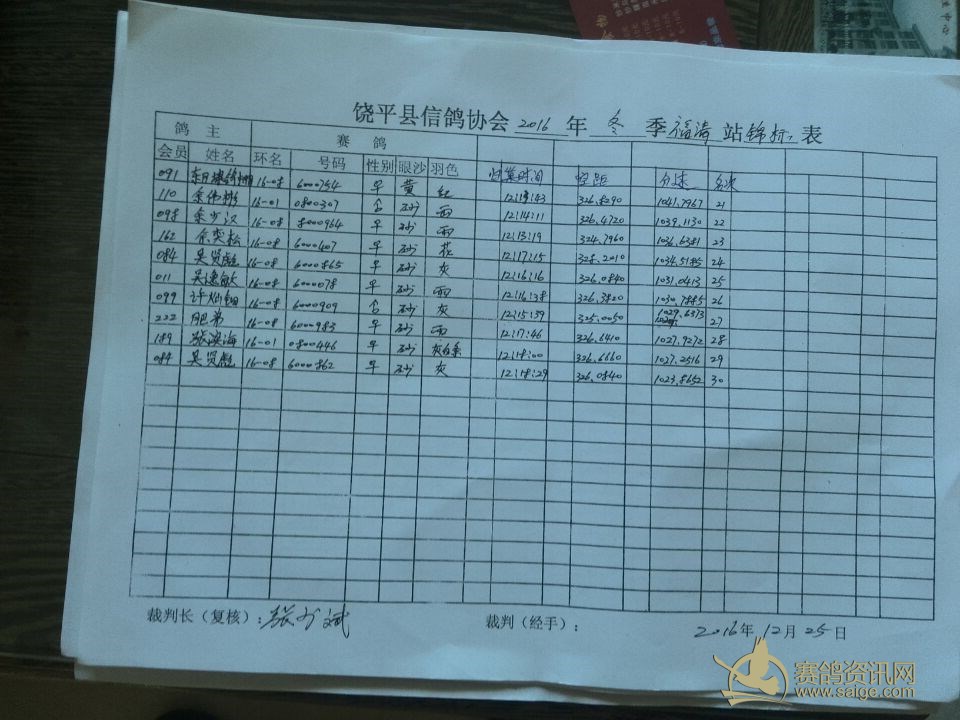 饶平县信鸽协会 2016 年 冬 季 福清 站 锦标 表
鸽 主 赛 鸽
会员 姓名 环号 号码 性别 眼沙 羽色 归巢时间 空距 分速 名次
091 16-08 6000754 黄 红 326.8090 1041.7967 21
110 余伟彬 16-01 0800307 砂 雨 12:14:11 326.4720 1039.1130 22
098 余少汉 16-08 8000964 砂 雨 12:13:19 324.7960 1036.6381 23
162 余奕松 16-08 6000407 砂 花 12:17:15 328.2010 1034.5185 24
084 吴贤彪 16-08 6000865 砂 灰 12:16:16 326.0840 1031.0413 25
011 吴 16-08 6000078 砂 雨 12:16:38 326.3820 1030.7885 26
099 许灿钿 16-08 6000909 砂 灰 12:15:39 325.0050 1029.6373 27
222 肥弟 16-08 6000983 砂 雨 12:17:46 326.6410 1027.9272 28
189 张滨海 16-01 0800446 砂 12:18:00 326.6660 1027.2516 29
084 吴贤彪 16-08 6000862 砂 灰 12:18:29 326.0840 1023.8652 30
裁判长（复核）：张 斌 裁判（经手）：
2016年 12月 25日
赛鸽资讯网
www.saige.com